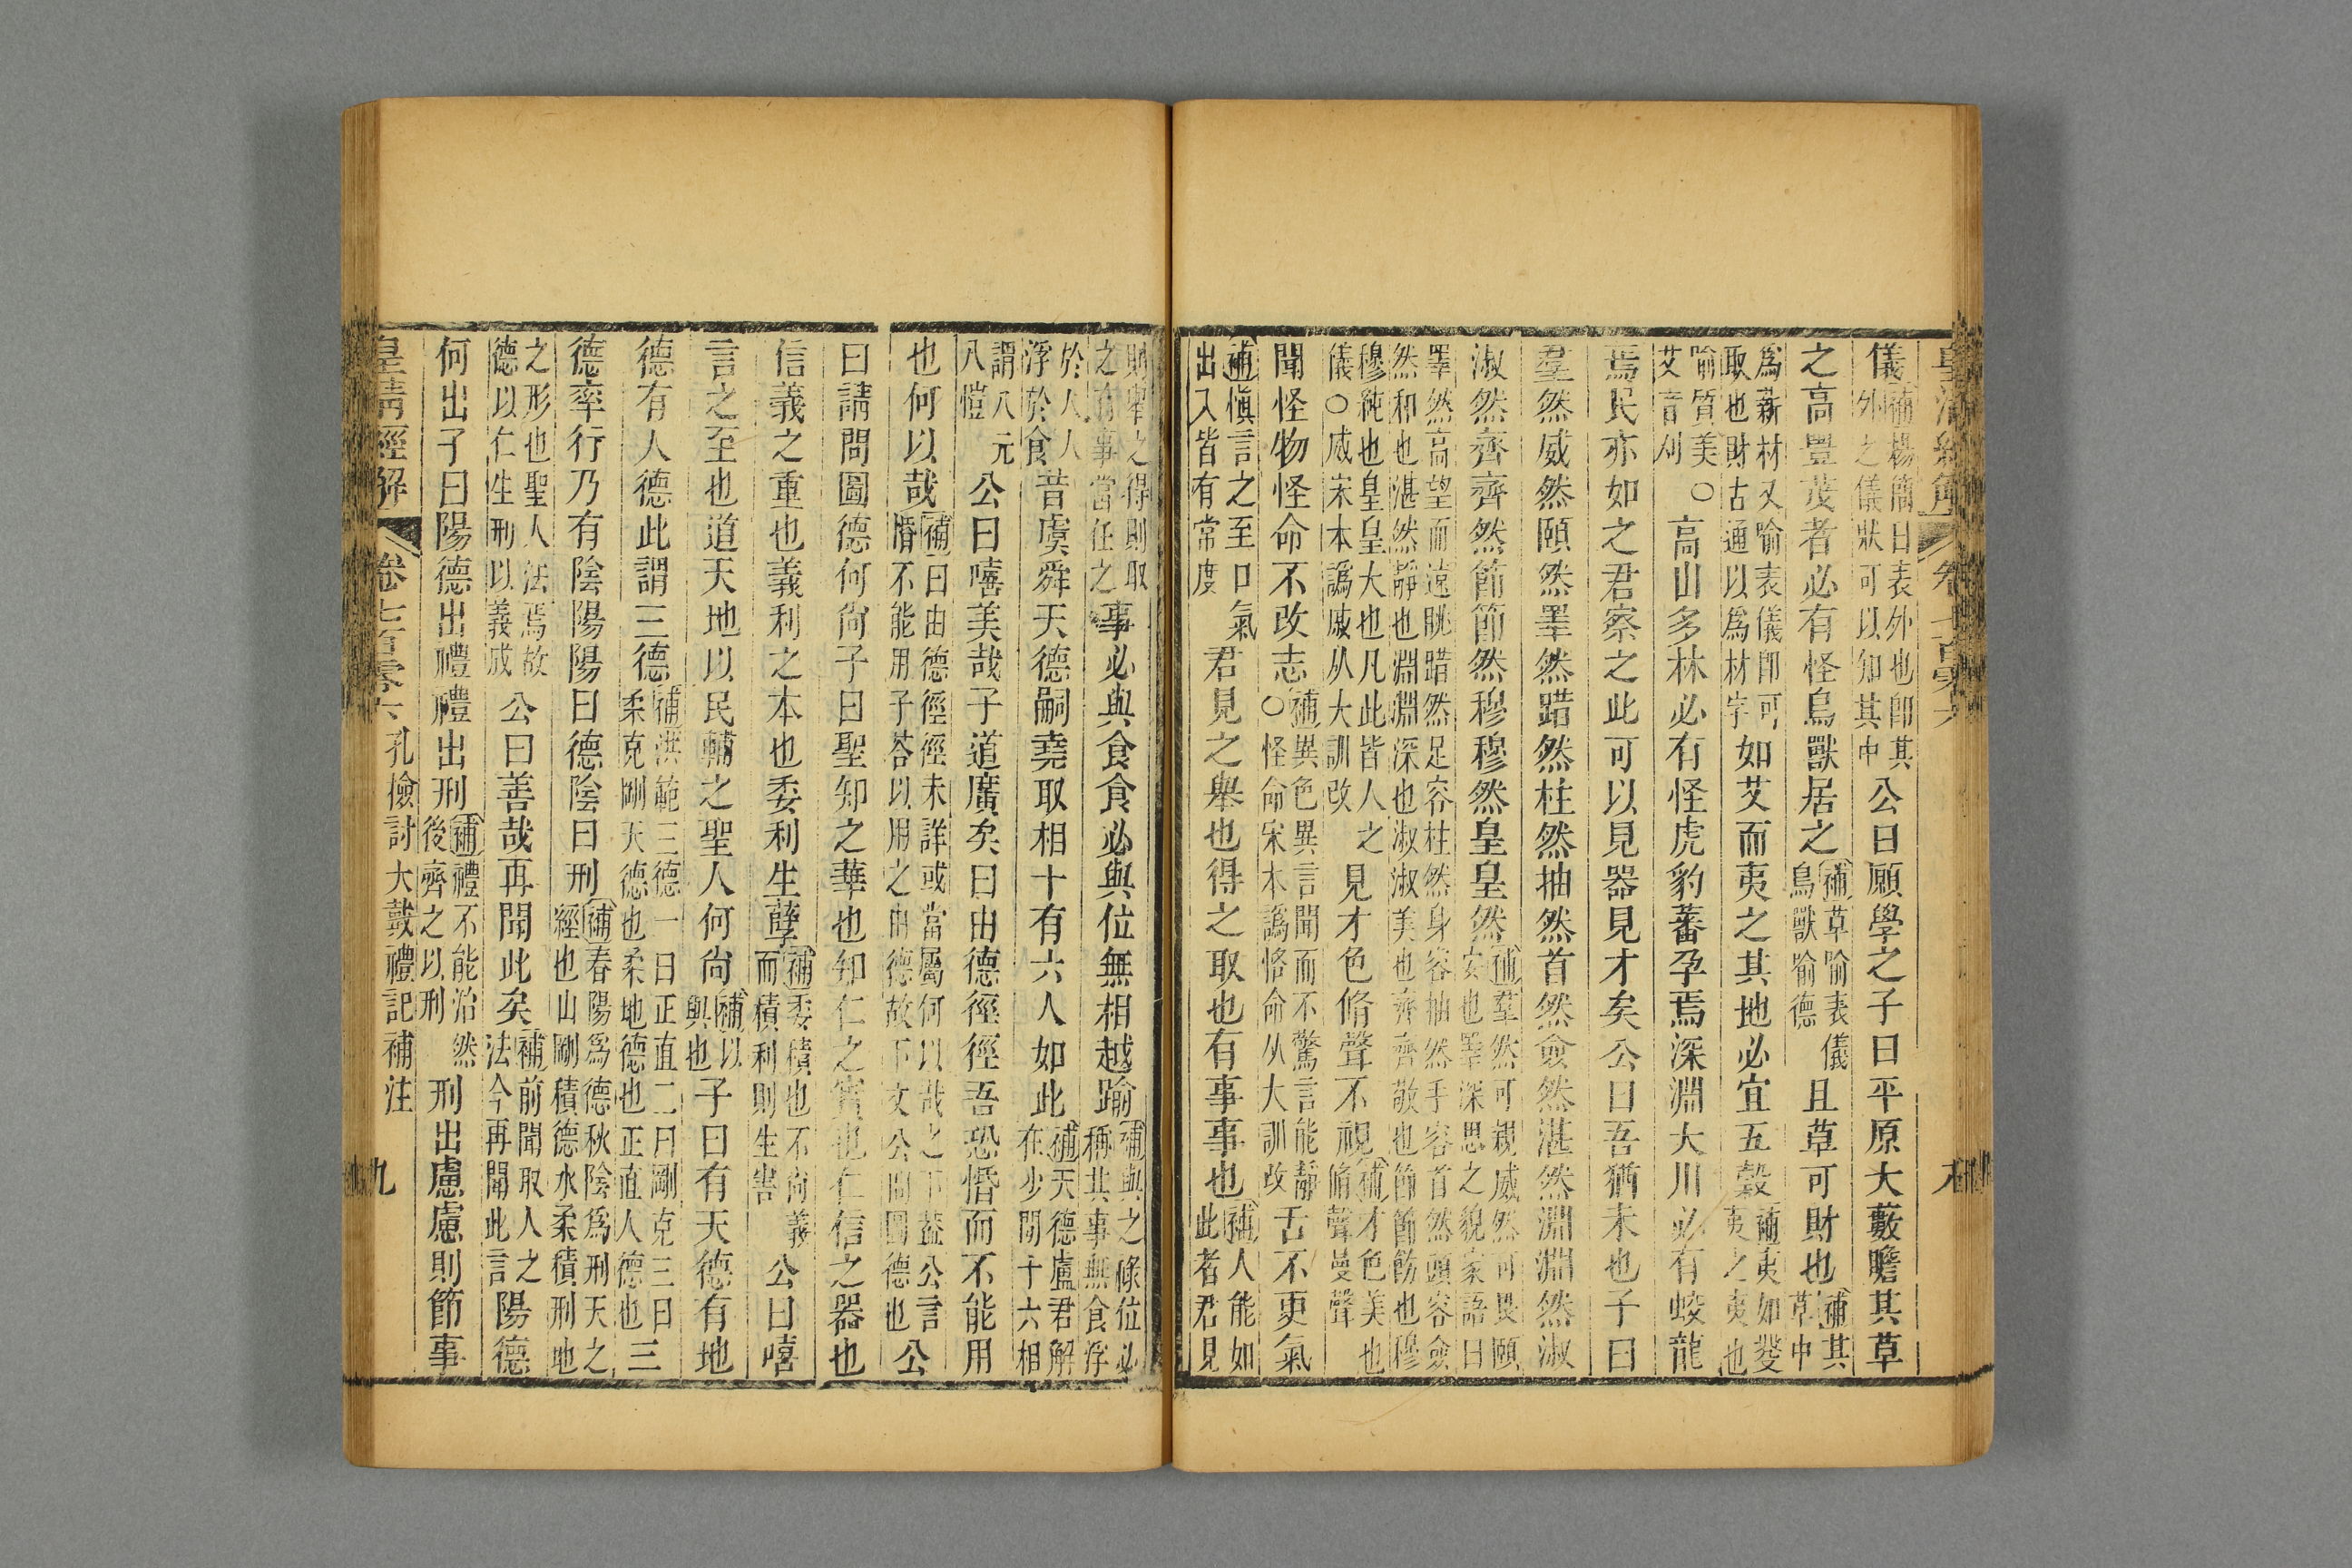 皇清經解 卷七百零六 八
儀補楊簡曰表外也卽其外之儀狀可以知其中公曰願學之子曰平原大藪瞻其草
之高豐茂者必有怪鳥獸居之補草喻表儀鳥獸喻德且草可財也補其草中
爲薪材又喻表儀卽可取也財古通以爲材字如艾而夷之其地必宜五穀補夷如發夷之夷也
喻質美○艾音刈高山多林必有怪虎豹蕃孕焉深淵大川必有蛟龍
焉民亦如之君察之此可以見器見才矣公曰吾猶未也子曰
羣然威然頤然睪然踖然柱然抽然首然僉然湛然淵淵然淑
淑然齊齊然節節然穆穆然皇皇然補羣然可親威然可畏頤安也睪深思之貌家語曰
睪然高望而遠眺踖然足容柱然身容抽然手容首然頭容僉然和也湛然靜也淵淵深也淑淑美也齊齊敬也節節飭也穆
穆純也皇皇大也凡此皆人之儀○威宋本譌戚从大訓改見才色脩聲不視補才色美也脩聲曼聲
聞怪物怪命不改志補異色異言聞而不驚言能靜○怪命宋本譌恪命从大訓改舌不更氣
補愼言之至口氣出入皆有常度君見之舉也得之取也有事事也補人能如此者君見
則舉之得則取之有事當任之事必與食食必與位無相越踰補與之祿位必稱其事無食浮
於人人浮於食昔虞舜天德嗣堯取相十有六人如此補天德盧君解在少閒十六相
謂八元八愷公曰嘻美哉子道廣矣曰由德徑徑吾恐惛而不能用
也何以哉補曰由德徑徑未詳或當屬何以哉之下蓋公言惛不能用子荅以用之由德故下文公問圖德也公
曰請問圖德何尙子曰聖知之華也知仁之實也仁信之器也
信義之重也義利之本也委利生孽補委積也不尙義而積利則生害公曰嘻
言之至也道天地以民輔之聖人何尙補以與也子曰有天德有地
德有人德此謂三德補洪範三德一曰正直二曰剛克三曰柔克剛天德也柔地德也正直人德也三
德率行乃有陰陽陽曰德陰曰刑補春陽爲德秋陰爲刑天之經也山剛積德水柔積刑地
之形也聖人法焉故德以仁生刑以義成公曰善哉再聞此矣補前聞取人之法今再聞此言陽德
何出子曰陽德出禮禮出刑補禮不能治然後齊之以刑刑出慮慮則節事
皇清經解 卷七百零六 孔檢討大戴禮記補注 九